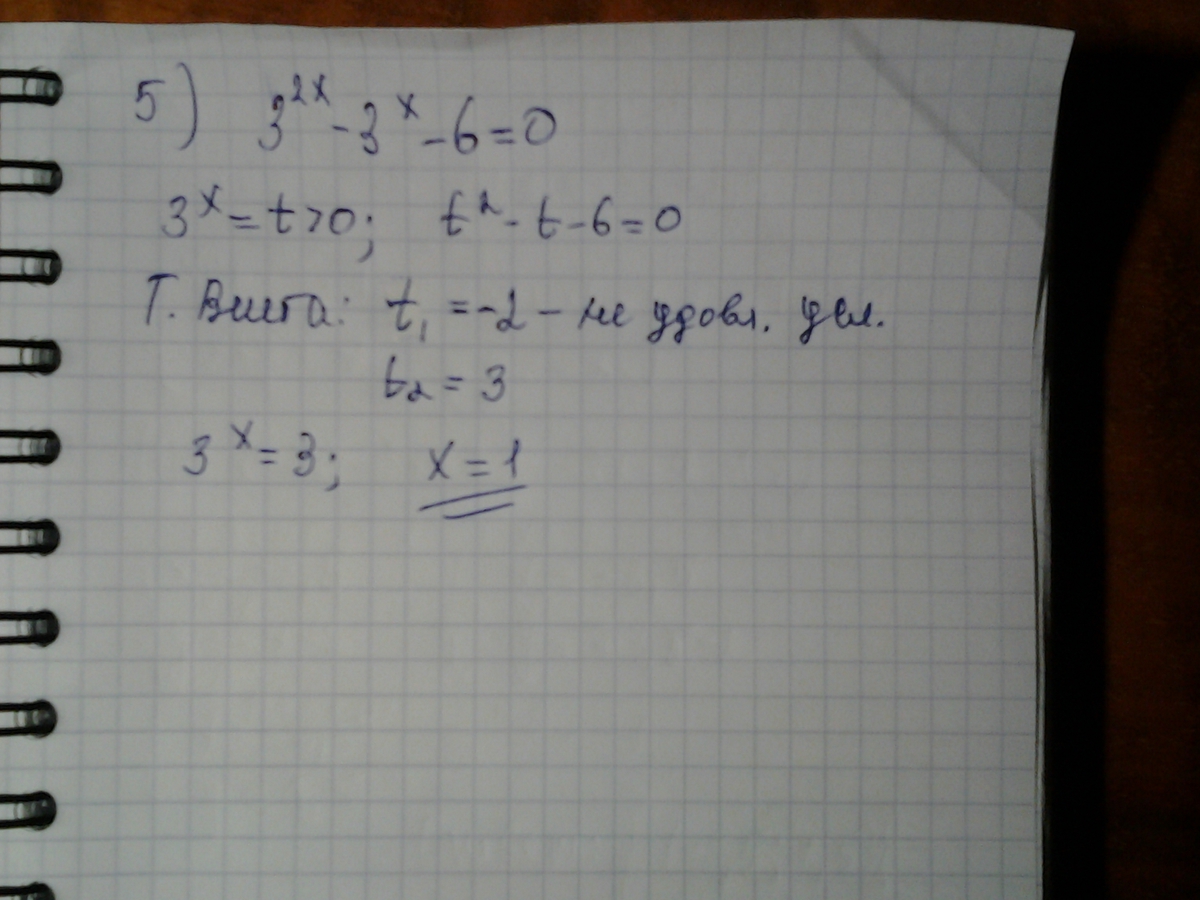 5) 3^{2x} - 3^x - 6 = 0
3^x = t > 0; t^2 - t - 6 = 0
Т. Виета: t_1 = -2 - не удовл. усл.
t_2 = 3
3^x = 3; x = 1